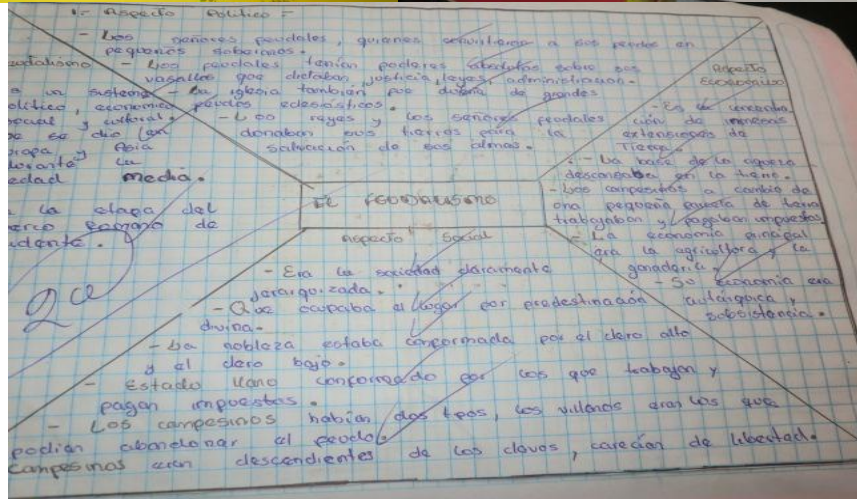 - Aspecto Político -
- Los señores feudales, quienes convirtieron a sus feudos en
pequeños soberanos.
- Los feudales tenían poderes absolutos sobre sus
vasallos que dictaban, justicia, leyes, administración.
- La iglesia también fue dueña de grandes
feudos eclesiásticos.
- Los reyes y los señores feudales
donaban sus tierras para la
salvación de sus almas.
un sistema
político, economico
social y cultural.
se dio en
Europa y Asia
durante la
edad media.
la etapa del
2ce
EL FEUDALISMO
Aspecto
Economico
- Es la concentra
ción de inmensas
extensiones de
Tierra.
- La base de la riqueza
descansaba en la tierra.
- Los campesinos a cambio de
una pequeña parcela de tierra
trabajaban y pagaban impuestos.
- La economía principal
era la agricultura y la
ganadería.
- So economía era
autárquica y
subsistencia.
Aspecto Social
- Era la sociedad claramente
jerarquizada.
- Que ocupaba el lugar por predestinación
divina.
- La nobleza estaba conformada por el clero alto
y el clero bajo.
- Estado llano conformado por los que trabajan y
pagan impuestos.
- Los campesinos habían dos tipos, los villanos eran los que
podían abandonar el feudo.
campesinos eran descendientes de los clavos, carecían de libertad.